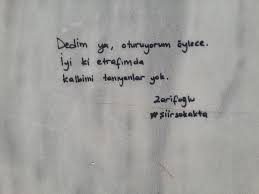 Dedim ya, oturuyorum öylece.
İyi ki etrafımda
kalbimi tanıyanlar yok.
Zarifoglu
#şiirsokakta